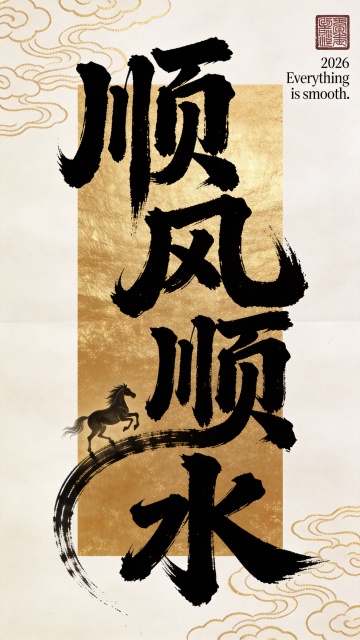 顺
风
顺
水
2026
Everything
is smooth.